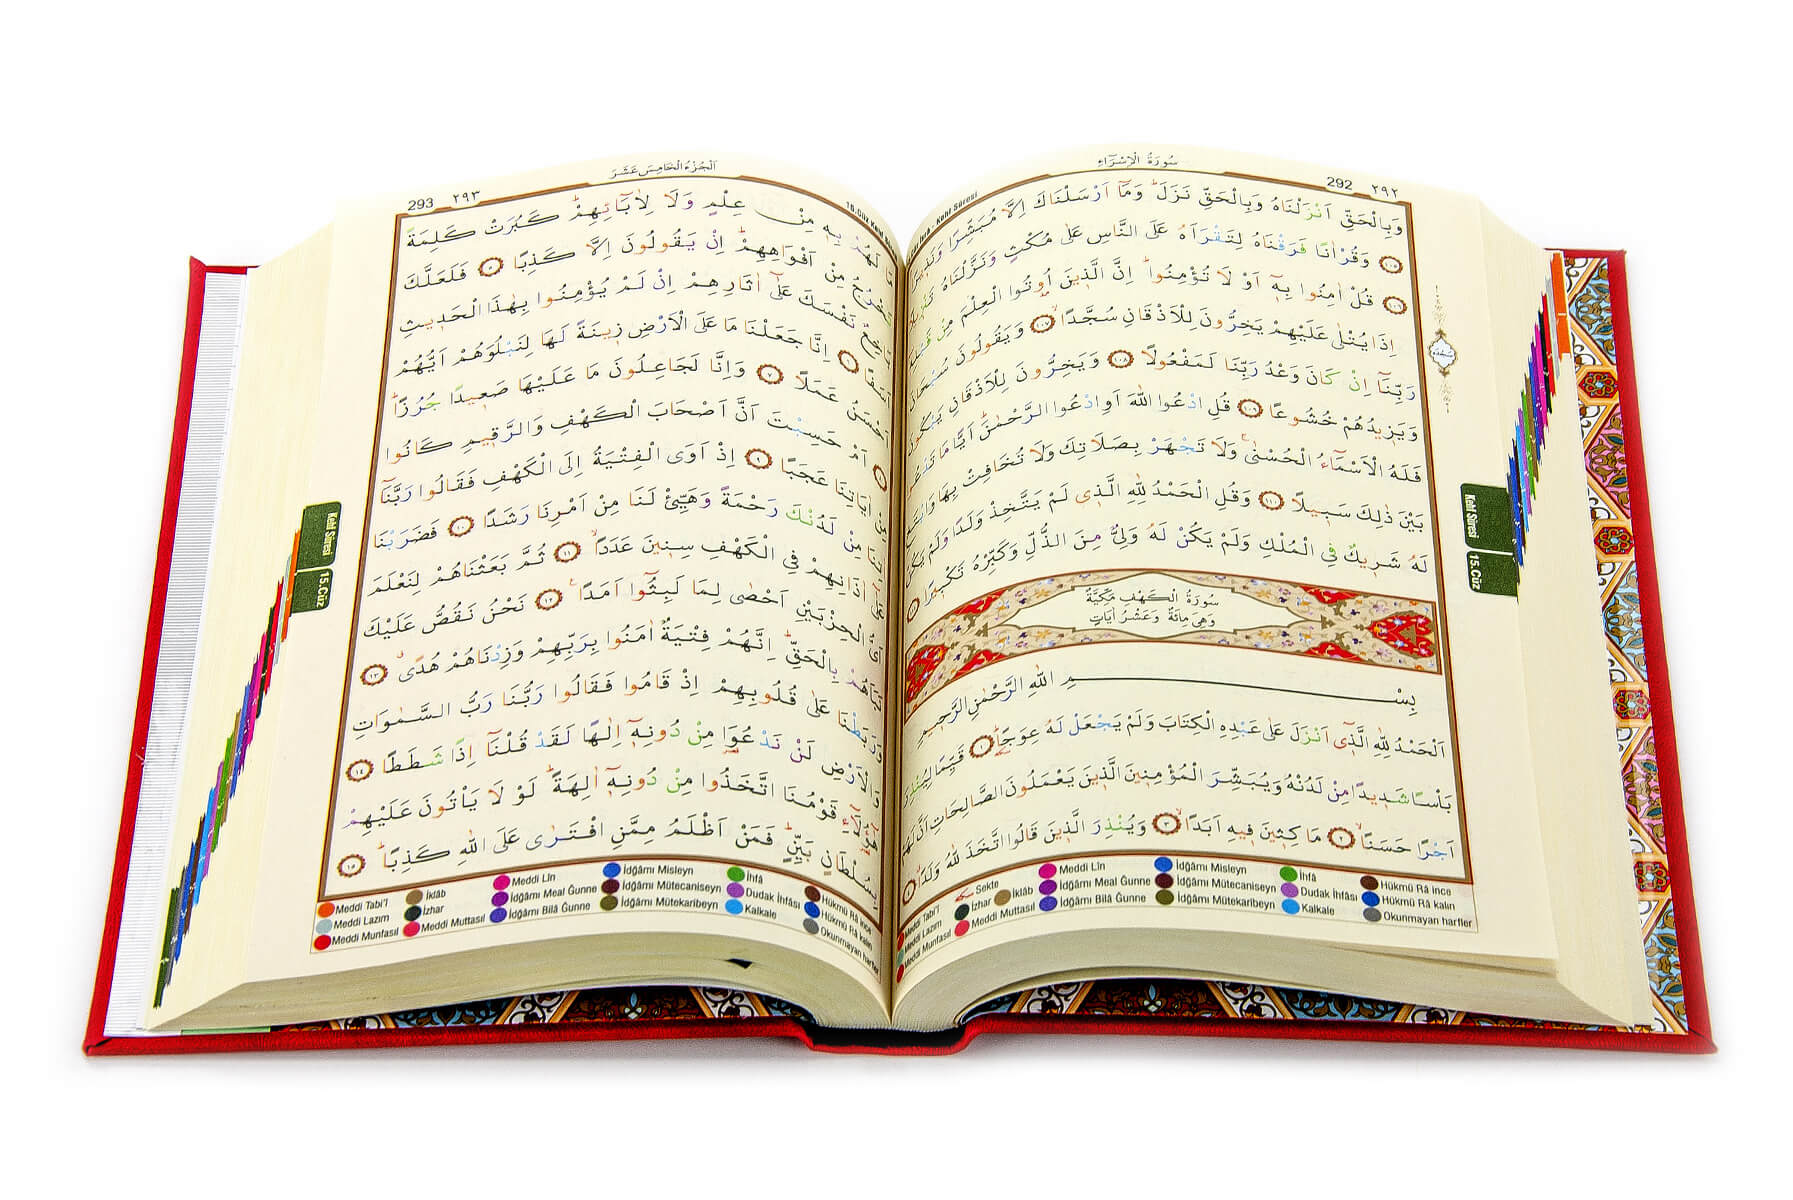 292 ٢٩٢
سُورَةُ الْاِسْرَٓاءِ
وَبِالْحَقِّ اَنْزَلْنَاهُ وَبِالْحَقِّ نَزَلَۜ وَمَٓا اَرْسَلْنَاكَ اِلَّا مُبَشِّرًا وَنَذ۪يرًا
﴿١٠٥﴾ وَقُرْاٰنًا فَرَقْنَاهُ لِتَقْرَاَهُ عَلَى النَّاسِ عَلٰى مُكْثٍ وَنَزَّلْنَاهُ
﴿١٠٦﴾ قُلْ اٰمِنُوا بِه۪ٓ اَوْ لَا تُؤْمِنُواۜ اِنَّ الَّذ۪ينَ اُو۫تُوا الْعِلْمَ مِنْ قَبْلِه۪ٓ
اِذَا يُتْلٰى عَلَيْهِمْ يَخِرُّونَ لِلْاَذْقَانِ سُجَّدًاۙ ﴿١٠٧﴾ وَيَقُولُونَ سُبْحَانَ
رَبِّنَٓا اِنْ كَانَ وَعْدُ رَبِّنَا لَمَفْعُولًا ﴿١٠٨﴾ وَيَخِرُّونَ لِلْاَذْقَانِ يَبْكُونَ
وَيَز۪يدُهُمْ خُشُوعًا ﴿١٠٩﴾ قُلِ ادْعُوا اللّٰهَ اَوِ ادْعُوا الرَّحْمٰنَۜ اَيًّا مَا تَدْعُوا
فَلَهُ الْاَسْمَٓاءُ الْحُسْنٰىۚ وَلَا تَجْهَرْ بِصَلَاتِكَ وَلَا تُخَافِتْ بِهَا وَابْتَغِ
بَيْنَ ذٰلِكَ سَب۪يلًا ﴿١١٠﴾ وَقُلِ الْحَمْدُ لِلّٰهِ الَّذ۪ي لَمْ يَتَّخِذْ وَلَدًا وَلَمْ يَكُنْ
لَهُ شَر۪يكٌ فِي الْمُلْكِ وَلَمْ يَكُنْ لَهُ وَلِيٌّ مِنَ الذُّلِّ وَكَبِّرْهُ تَكْب۪يرًا
سُورَةُ الْكَهْفِ مَكِّيَّةٌ
وَهِيَ مِائَةٌ وَعَشْرُ اٰيَاتٍ
بِسْمِ اللّٰهِ الرَّحْمٰنِ الرَّح۪يمِ
اَلْحَمْدُ لِلّٰهِ الَّذ۪ٓي اَنْزَلَ عَلٰى عَبْدِهِ الْكِتَابَ وَلَمْ يَجْعَلْ لَهُ عِوَجًاۜ ﴿١﴾ قَيِّمًا لِيُنْذِرَ
بَاْسًا شَد۪يدًا مِنْ لَدُنْهُ وَيُبَشِّرَ الْمُؤْمِن۪ينَ الَّذ۪ينَ يَعْمَلُونَ الصَّالِحَاتِ اَنَّ لَهُمْ
اَجْرًا حَسَنًاۙ ﴿٢﴾ مَا كِث۪ينَ ف۪يهِ اَبَدًاۙ ﴿٣﴾ وَيُنْذِرَ الَّذ۪ينَ قَالُوا اتَّخَذَ اللّٰهُ وَلَدًا
Kehf Sûresi 15.Cüz
Sekte Meddi Lîn İdğâmı Misleyn İhfâ Hükmü Râ ince
Meddi Tabi'î İzhar İklâb İdğâmı Meal Ğunne İdğâmı Mütecaniseyn Dudak İhfâsı Hükmü Râ kalın
Meddi Lazım Meddi Munfasıl Meddi Muttasıl İdğâmı Bilâ Ğunne İdğâmı Mütekaribeyn Kalkale Okunmayan harfler
293 ٢٩٣
اَلْجُزْءُ الْخَامِسَ عَشَرَ
مَا لَهُمْ بِه۪ مِنْ عِلْمٍ وَلَا لِاٰبَٓائِهِمْۜ كَبُرَتْ كَلِمَةً
تَخْرُجُ مِنْ اَفْوَاهِهِمْۜ اِنْ يَقُولُونَ اِلَّا كَذِبًا ﴿٥﴾ فَلَعَلَّكَ
بَاخِعٌ نَفْسَكَ عَلٰٓى اٰثَارِهِمْ اِنْ لَمْ يُؤْمِنُوا بِهٰذَا الْحَد۪يثِ
اَسَفًا ﴿٦﴾ اِنَّا جَعَلْنَا مَا عَلَى الْاَرْضِ ز۪ينَةً لَهَا لِنَبْلُوَهُمْ اَيُّهُمْ
اَحْسَنُ عَمَلًا ﴿٧﴾ وَاِنَّا لَجَاعِلُونَ مَا عَلَيْهَا صَع۪يدًا جُرُزًاۜ
﴿٨﴾ اَمْ حَسِبْتَ اَنَّ اَصْحَابَ الْكَهْفِ وَالرَّق۪يمِ كَانُوا
مِنْ اٰيَاتِنَا عَجَبًا ﴿٩﴾ اِذْ اَوَى الْفِتْيَةُ اِلَى الْكَهْفِ فَقَالُوا رَبَّنَٓا
اٰتِنَا مِنْ لَدُنْكَ رَحْمَةً وَهَيِّئْ لَنَا مِنْ اَمْرِنَا رَشَدًا ﴿١٠﴾ فَضَرَبْنَا
عَلٰٓى اٰذَانِهِمْ فِي الْكَهْفِ سِن۪ينَ عَدَدًاۙ ﴿١١﴾ ثُمَّ بَعَثْنَاهُمْ لِنَعْلَمَ
اَيُّ الْحِزْبَيْنِ اَحْصٰى لِمَا لَبِثُٓوا اَمَدًا۟ ﴿١٢﴾ نَحْنُ نَقُصُّ عَلَيْكَ
نَبَاَهُمْ بِالْحَقِّۜ اِنَّهُمْ فِتْيَةٌ اٰمَنُوا بِرَبِّهِمْ وَزِدْنَاهُمْ هُدًىۗ ﴿١٣﴾
وَرَبَطْنَا عَلٰى قُلُوبِهِمْ اِذْ قَامُوا فَقَالُوا رَبُّنَا رَبُّ السَّمٰوَاتِ
وَالْاَرْضِ لَنْ نَدْعُوَا۬ مِنْ دُونِه۪ٓ اِلٰهًا لَقَدْ قُلْنَٓا اِذًا شَطَطًا ﴿١٤﴾
هٰٓؤُ۬لَٓاءِ قَوْمُنَا اتَّخَذُوا مِنْ دُونِه۪ٓ اٰلِهَةًۜ لَوْ لَا يَاْتُونَ عَلَيْهِمْ
بِسُلْطَانٍ بَيِّنٍۜ فَمَنْ اَظْلَمُ مِمَّنِ افْتَرٰى عَلَى اللّٰهِ كَذِبًاۜ ﴿١٥﴾
Kehf Sûresi 15.Cüz
Meddi Tabi'î İklâb Meddi Lîn İdğâmı Misleyn İhfâ Hükmü Râ ince
Meddi Lazım İzhar İdğâmı Meal Ğunne İdğâmı Mütecaniseyn Dudak İhfâsı Hükmü Râ kalın
Meddi Munfasıl Meddi Muttasıl İdğâmı Bilâ Ğunne İdğâmı Mütekaribeyn Kalkale Okunmayan harfler